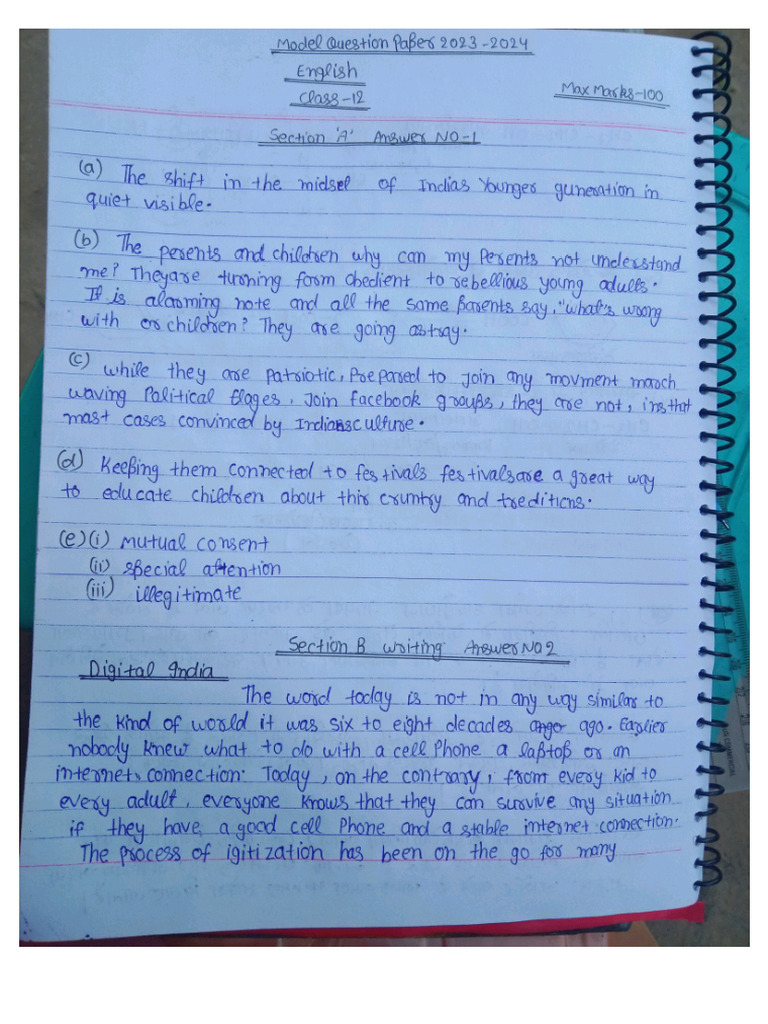 Model Question Paper 2023-2024
English
Class-12
Max Marks-100
Section 'A' Answer NO-1
(a) The shift in the midsel of Indias Younger guneration in
quiet visible.
(b) The perents and children why can my Perents not understand
me? Theyare turning form obedient to rebellious young adults.
It is alarming note and all the same Parents say, "what's wrong
with or children? They are going astray.
(c) while they are patriotic, Prepared to Join any movment march
waving Political flages, Join facebook groups, they are not, ins that
mast cases convinced by Indians culture.
(d) Keeping them connected to festivals festivalsare a great way
to educate children about thir cruntry and treditions.
(e)(i) mutual consent
(ii) special attention
(iii) illegitimate
Section B writing Answer NO 2
Digital India
The word today is not in any way similar to
the kind of world it was six to eight decades ango ago. Earlier
nobody knew what to do with a cell Phone a laptop or an
internet, connection. Today, on the contrary, from every kid to
every adult, everyone knows that they can survive any situation
if they have a good cell Phone and a stable internet connection.
The process of igitization has been on the go for many